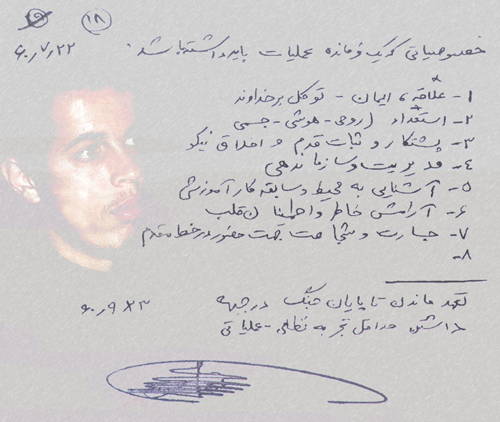 ۹ ۱۸
۶۰٫۷٫۲۲
خصوصیاتی که یک فرمانده عملیات باید داشته باشد:
۱- علاقه، ایمان - توکل بر خداوند
۲- استعداد (روحی - هوشی - جسمی
۳- پشتکار و ثبات قدم و اخلاق نیکو
۴- مدیریت و سازماندهی
۵- آشنایی به محیط و سابقه کار آموزشی
۶- آرامش خاطر و اطمینان قلب
۷- جسارت و شجاعت جهت حضور در خط مقدم
۸-
تعهد ماندن تا پایان جنگ در جبهه
داشتن حداقل تجربه نظامی - عملیاتی